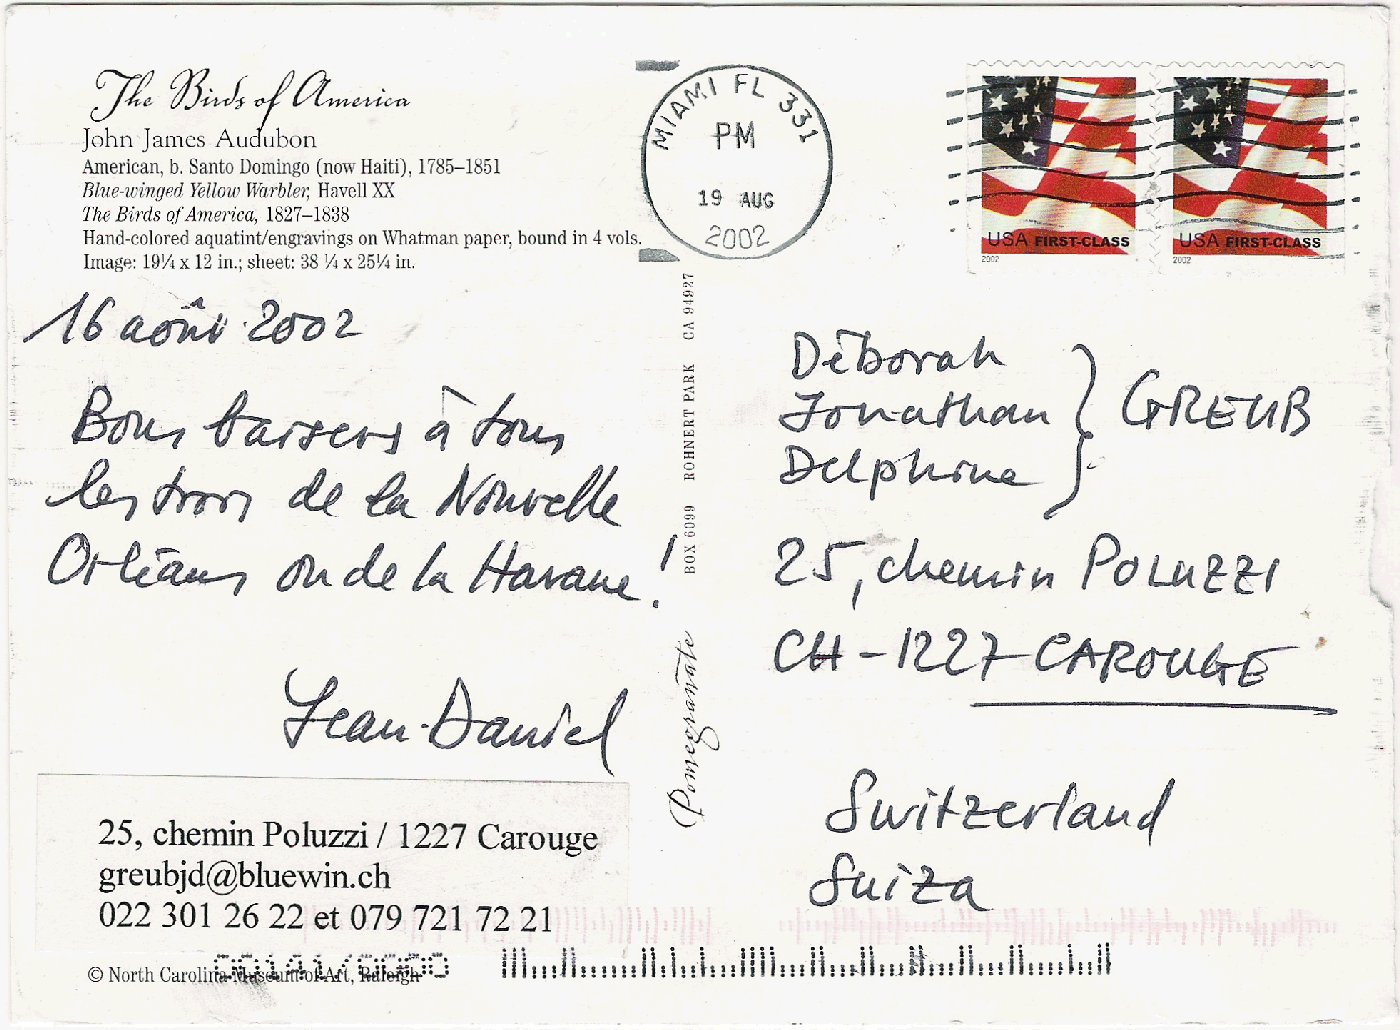 The Birds of America
John James Audubon
American, b. Santo Domingo (now Haiti), 1785–1851
Blue-winged Yellow Warbler, Havell XX
The Birds of America, 1827–1838
Hand-colored aquatint/engravings on Whatman paper, bound in 4 vols.
Image: 19¼ x 12 in.; sheet: 38 ¼ x 25¼ in.
16 août 2002
Bons baisers à tous
les trois de la Nouvelle
Orléans ou de la Havane !
Jean-Daniel
25, chemin Poluzzi / 1227 Carouge
greubjd@bluewin.ch
022 301 26 22 et 079 721 72 21
© North Carolina Museum of Art, Raleigh
MIAMI FL 331
PM
19 AUG
2002
Pomegranate BOX 6099 ROHNERT PARK CA 94927
USA FIRST-CLASS
2002
USA FIRST-CLASS
2002
Déborah
Jonathan } GREUB
Delphine
25, chemin POLUZZI
CH-1227 CAROUGE
Switzerland
Suiza